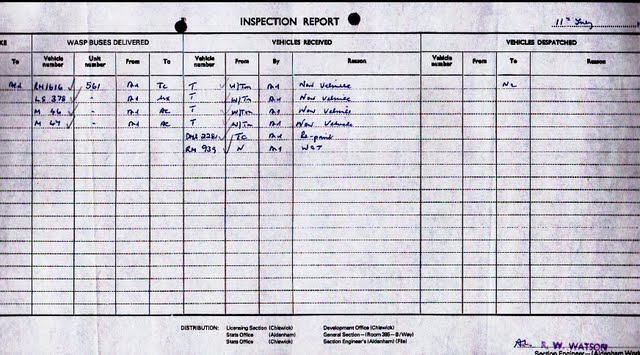 INSPECTION REPORT
11th July
KE
WASP BUSES DELIVERED
VEHICLES RECEIVED
VEHICLES DESPATCHED
To
Vehicle number
Unit number
From
To
Vehicle number
From
By
Reason
Vehicle number
From
To
Reason
RM1616 561 Ad TC T W/Tm Ad New Vehicle
LS 378 - Ad T W/Tm Ad New Vehicle
M 46 - Ad AC T W/Tm Ad New Vehicle
M 47 - Ad AC T W/Tm Ad New Vehicle
DMS 2281 TC Ad Re-paint
RM 939 N Ad
DISTRIBUTION:
Licensing Section (Chiswick)
Stats Office (Aldenham)
Stats Office (Chiswick)
Development Office (Chiswick)
General Section - (Room 395 - B/Way)
Section Engineer's (Aldenham) (File)
R. W. WATSON
Section Engineer - (Aldenham Works